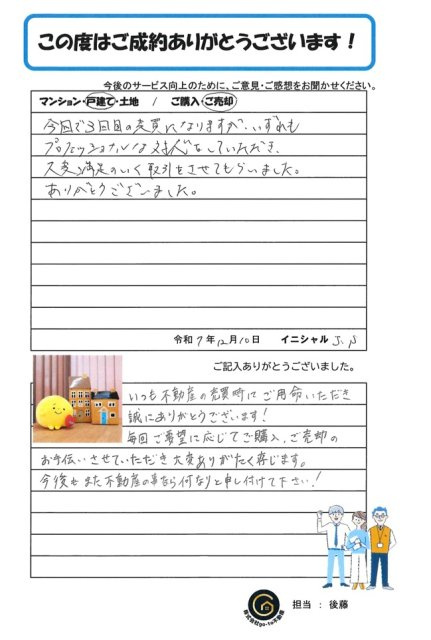 この度はご成約ありがとうございます！
今後のサービス向上のために、ご意見・ご感想をお聞かせください。
マンション・戸建て・土地 / ご購入・ご売却
今回で3回目の売買になりますが、いずれも
プロフェッショナルな対応をしていただき、
大変満足のいく取引をさせてもらいました。
ありがとうございました。
令和7年12月10日 イニシャル J.N
ご記入ありがとうございました。
いつも不動産の売買時にご用命いただき
誠にありがとうございます！
毎回ご希望に応じてご購入、ご売却の
お手伝いさせていただき大変ありがたく存じます。
今後もまた不動産の事なら何なりと申し付けて下さい！
株式会社go-to不動産
担当 : 後藤